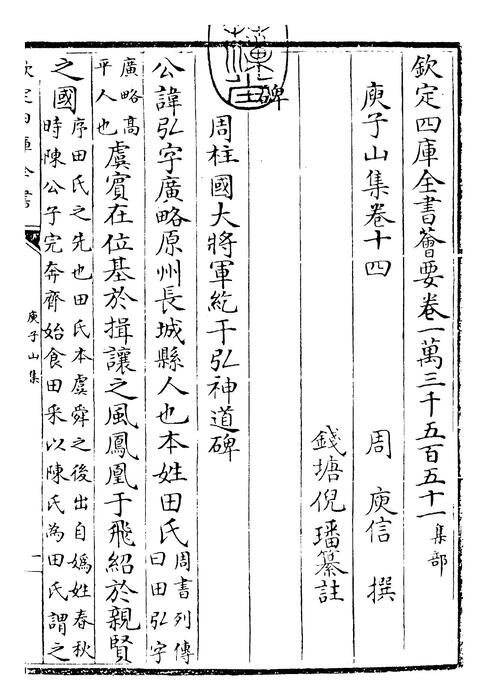 欽定四庫全書薈要卷一萬三千五百五十一集部
庾子山集卷十四
周庾信撰
錢塘倪璠纂註
碑
周柱國大將軍紇干弘神道碑
公諱弘字廣略原州長城縣人也本姓田氏周書列傳曰田弘字
廣略高平人也虞賓在位基於揖讓之風鳳凰于飛紹於親賢
之國序田氏之先也田氏本虞舜之後出自媯姓春秋時陳公子完奔齊始食田采以陳氏為田氏謂之
欽定四庫全書
庾子山集
一